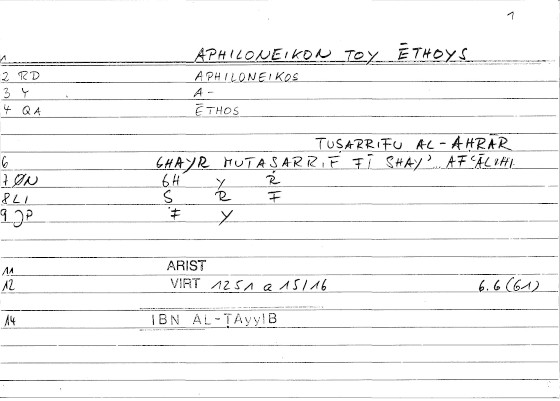 1
1 APHILONEIKON TOY ĒTHOYS
2 RD APHILONEIKOS
3 Y A-
4 QA ĒTHOS
TUṢARRIFU AL-AḤRĀR
6 GHAYR MUTAṢARRIF FĪ SHAY' AF'ĀLIHI
7 ØN GH Y R
8 LI Ṣ R F
9 JP F Y
11 ARIST
12 VIRT 1251 a 15/16 6.6 (61)
14 IBN AL-ṬAyyIB